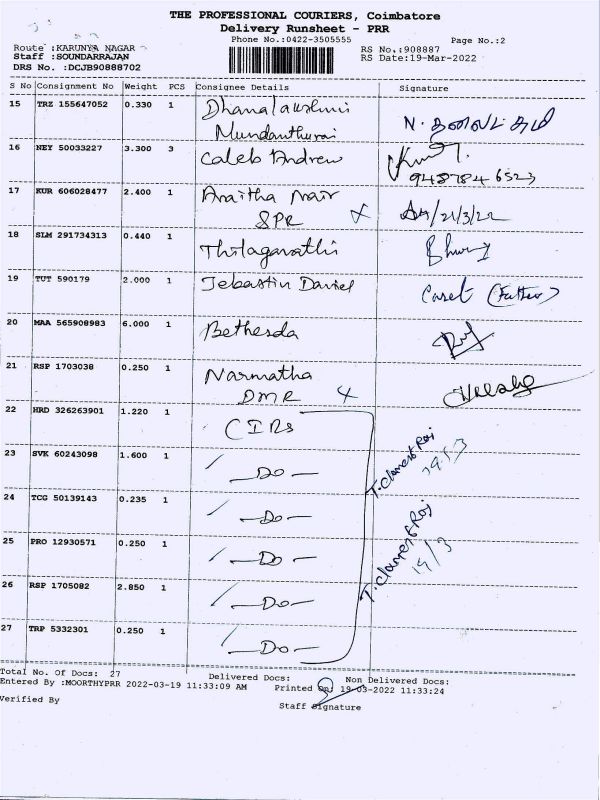 THE PROFESSIONAL COURIERS, Coimbatore
Delivery Runsheet - PRR
Phone No.:0422-3505555
Page No.:2
Route :KARUNYA NAGAR
RS No.:908887
Staff :SOUNDARRAJAN
RS Date:19-Mar-2022
DRS No. :DCJB90888702
S No Consignment No Weight PCS Consignee Details Signature
15 TRZ 155647052 0.330 1 Dhanalakshmi
Mundanthurai N.
16 NEY 50033227 3.300 3 Caleb Andrew
9487846523
17 KUR 606028477 2.400 1 Nair
SPR X /21/3/22
18 SLM 291734313 0.440 1 Thilagavathi
19 TUT 590179 2.000 1 Jebastin Daniel (Father)
20 MAA 565908983 6.000 1 Bethesda
21 RSP 1703038 0.250 1 Narmatha
DMR X
22 HRD 326263901 1.220 1 CIRs
23 SVK 60243098 1.600 1 - Do -
T. Raj
19/3
24 TCG 50139143 0.235 1 - Do -
25 PRO 12930571 0.250 1 - Do -
T. Raj
19/3
26 RSP 1705082 2.850 1 - Do -
27 TRP 5332301 0.250 1 - Do -
Total No. Of Docs: 27 Delivered Docs: Non Delivered Docs:
Entered By :MOORTHYPRR 2022-03-19 11:33:09 AM Printed On: 19-03-2022 11:33:24
Verified By
Staff Signature